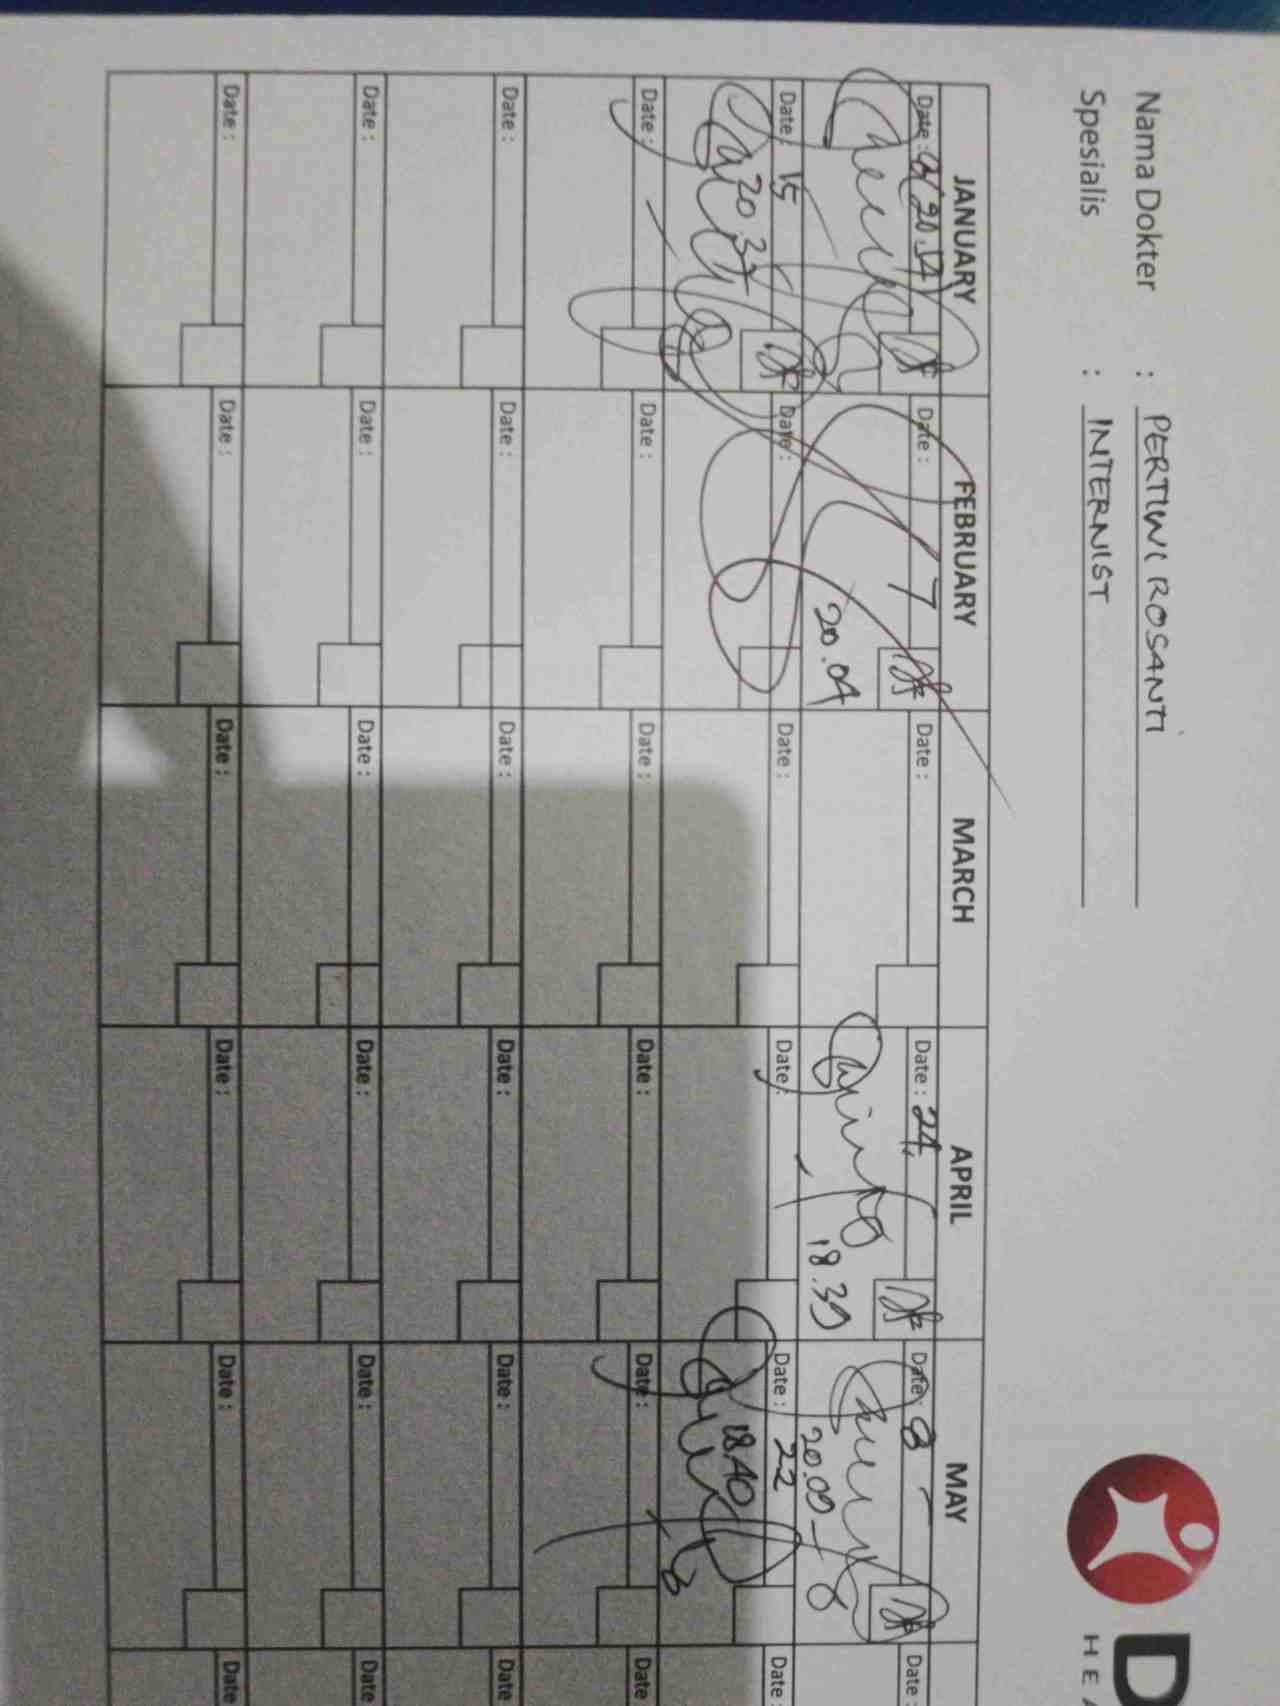 Nama Dokter : PERTIWI ROSANTI
Spesialis : INTERNIST
D
HEA
JANUARY FEBRUARY MARCH APRIL MAY
Date : 20.52 Date : 7 Date : Date : 24 Date : 8 Date :
20.04 18.39 20.09
Date : 15 Date : Date : Date : Date : 22 Date :
20.37 18.40
Date : Date : Date : Date : Date : Date
Date : Date : Date : Date : Date : Date
Date : Date : Date : Date : Date : Date
Date : Date : Date : Date : Date : Date